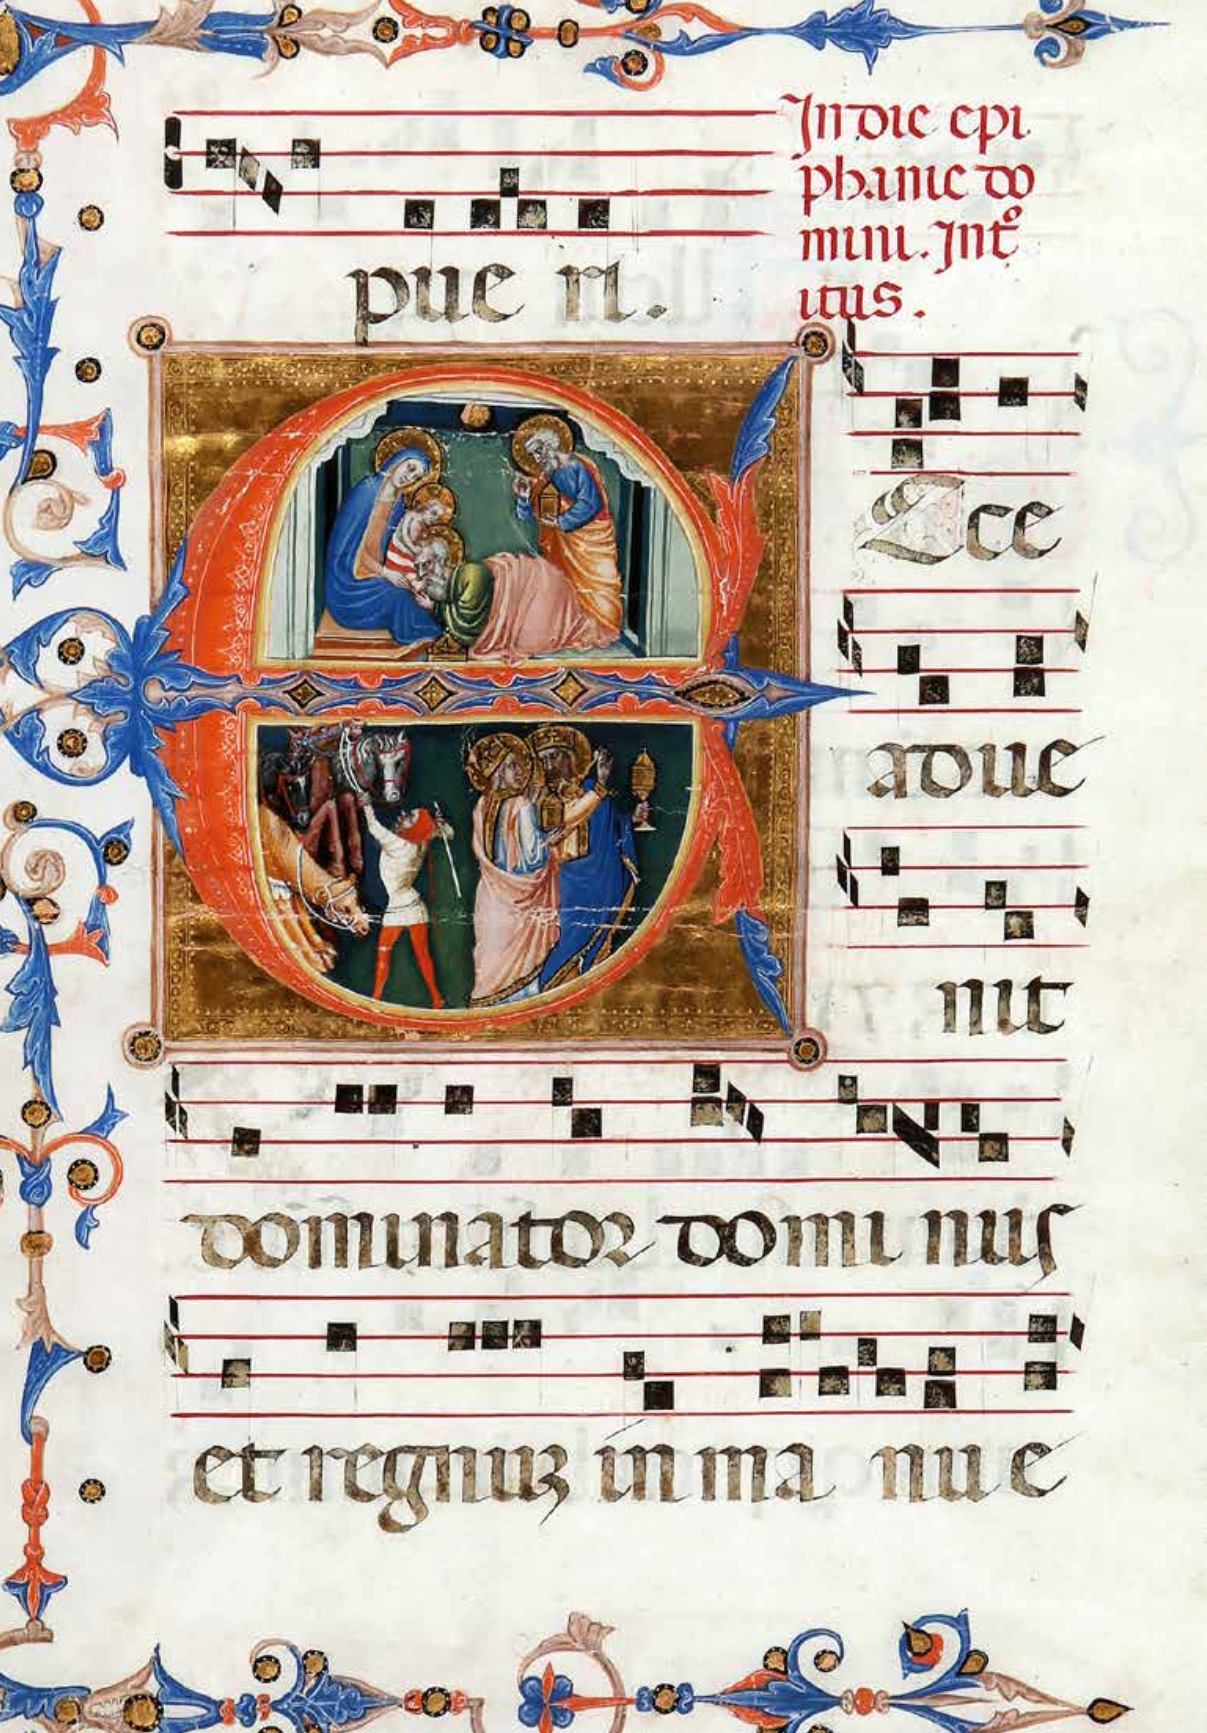 pue ri.
In die epi
phanie do
mini. Int͛
itus.
Ecce
adue
nit
dominator domi nus
et regnuꝫ in ma nu e